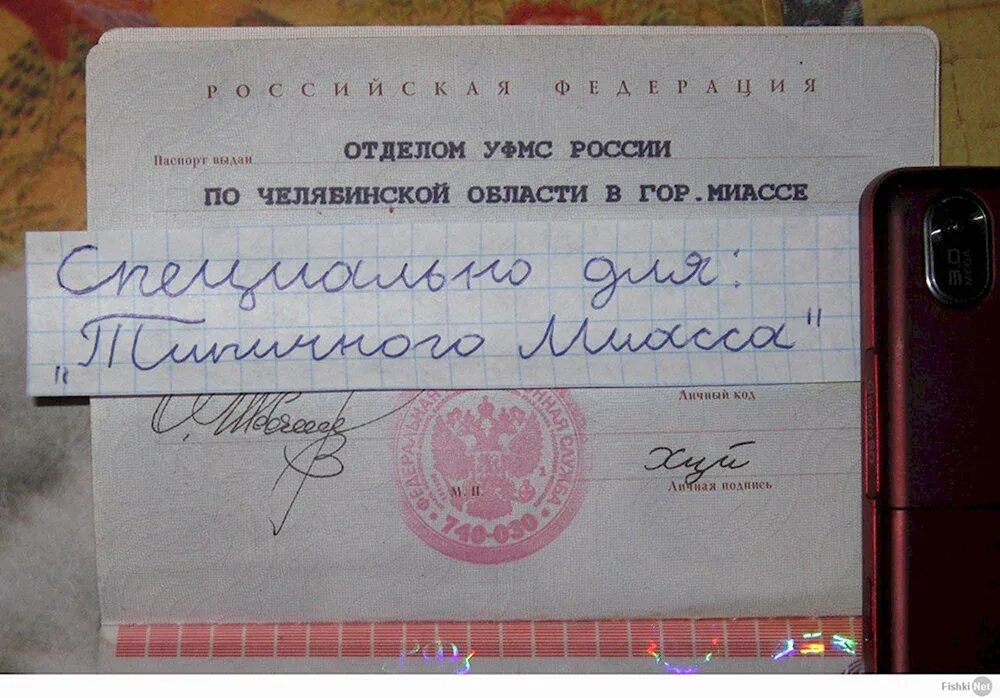 РОССИЙСКАЯ ФЕДЕРАЦИЯ
Паспорт выдан ОТДЕЛОМ УФМС РОССИИ
ПО ЧЕЛЯБИНСКОЙ ОБЛАСТИ В ГОР.МИАССЕ
Специально для:
„Типичного Миасса"
Личный код
ФЕДЕРАЛЬНАЯ СЛУЖБА
740-030
М. П.
хуй
Личная подпись
3 MEGA
РФ
Fishki Net